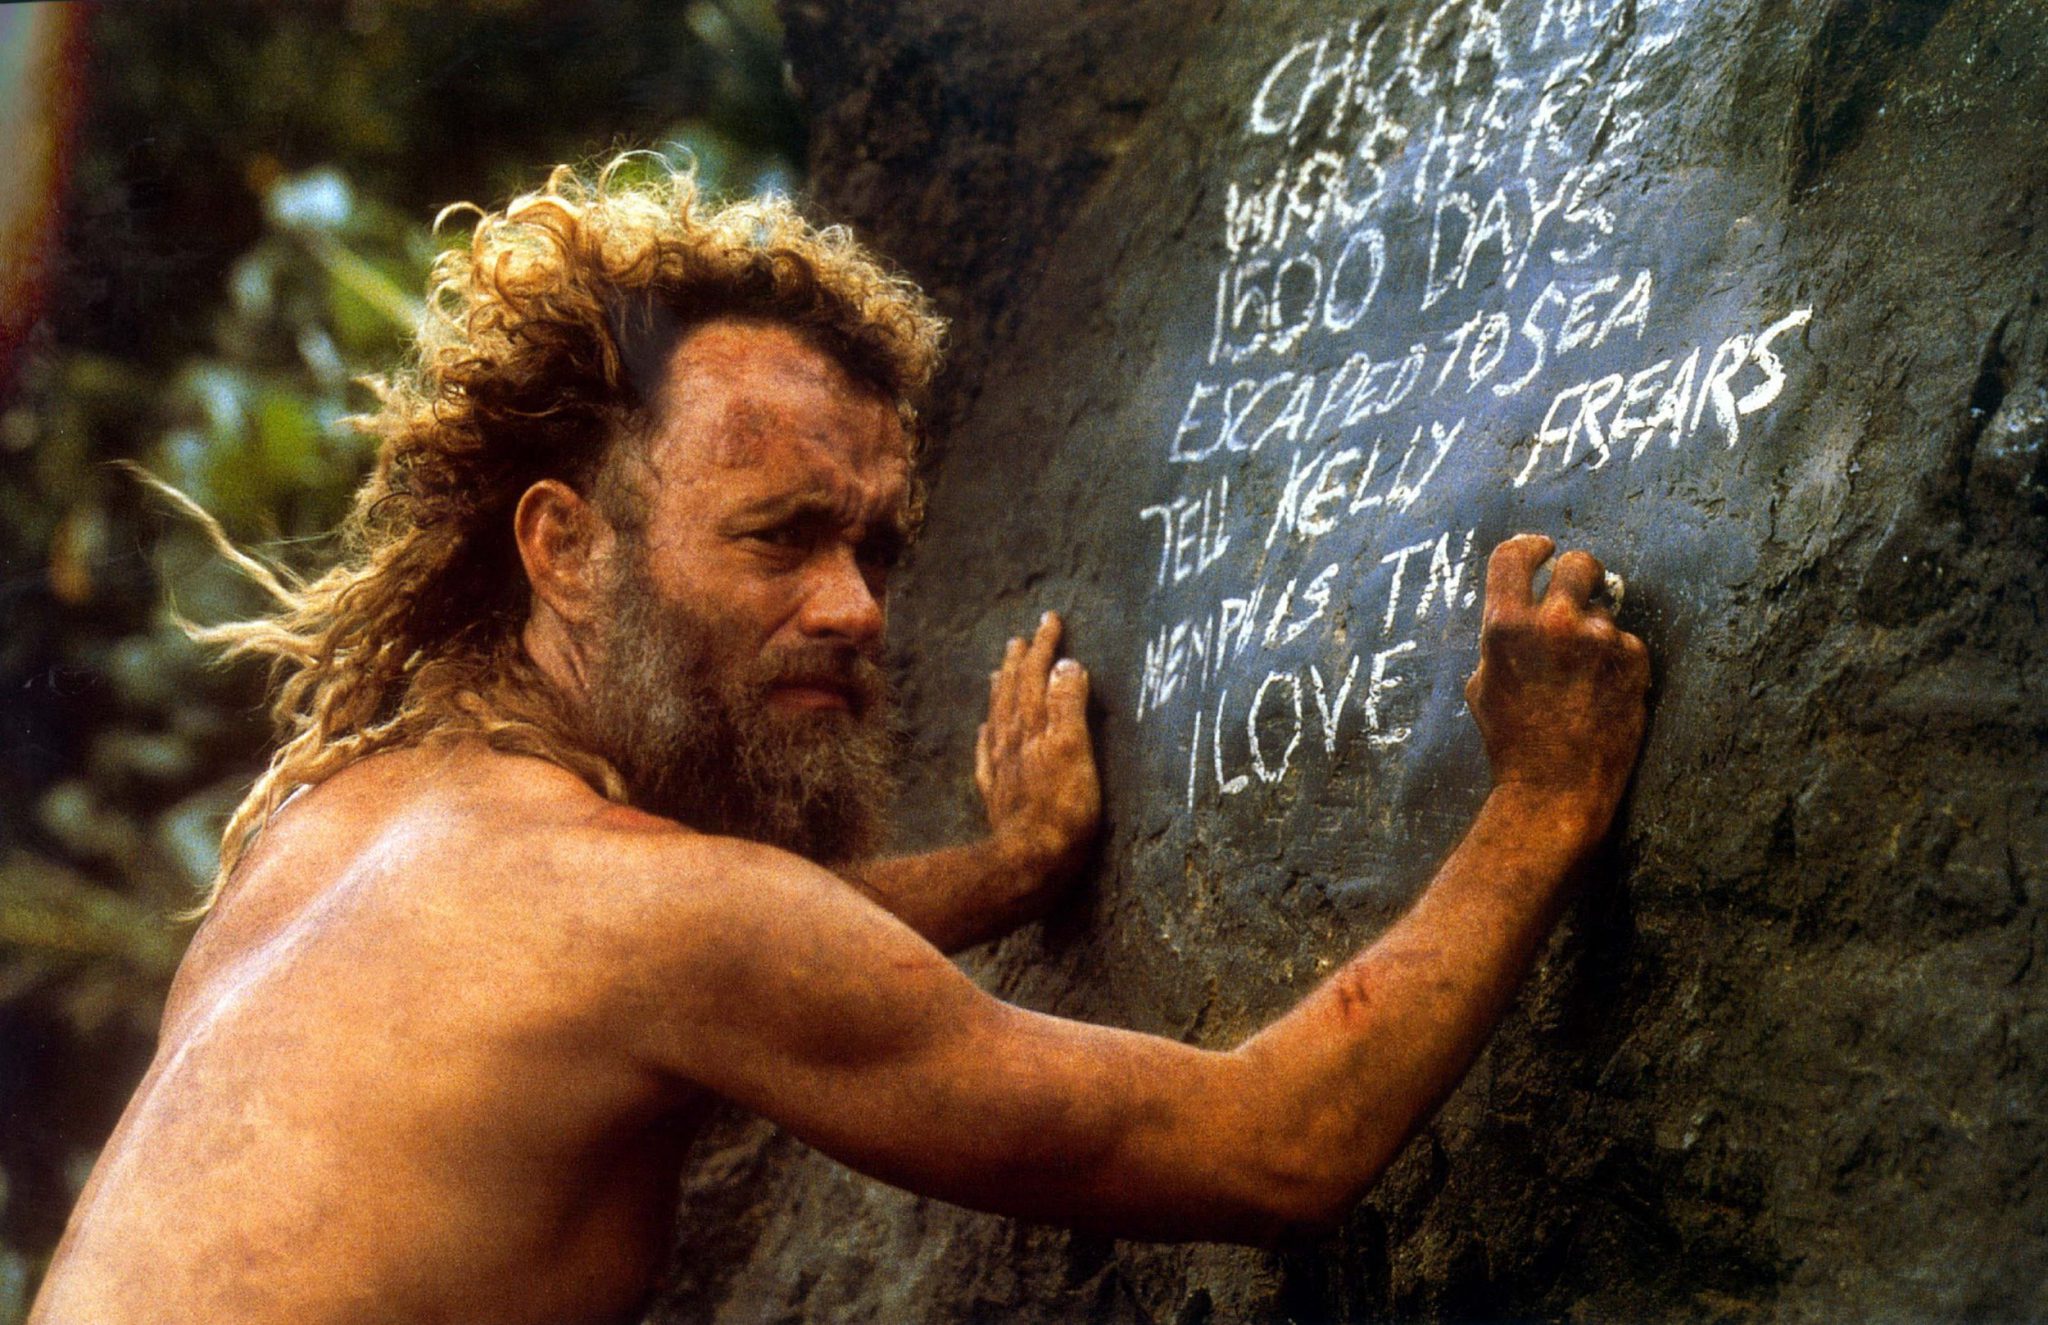 CHUCK NOL
WAS HERE
1500 DAYS
ESCAPED TO SEA
TELL KELLY FREARS
MEMPHIS TN.
I LOVE